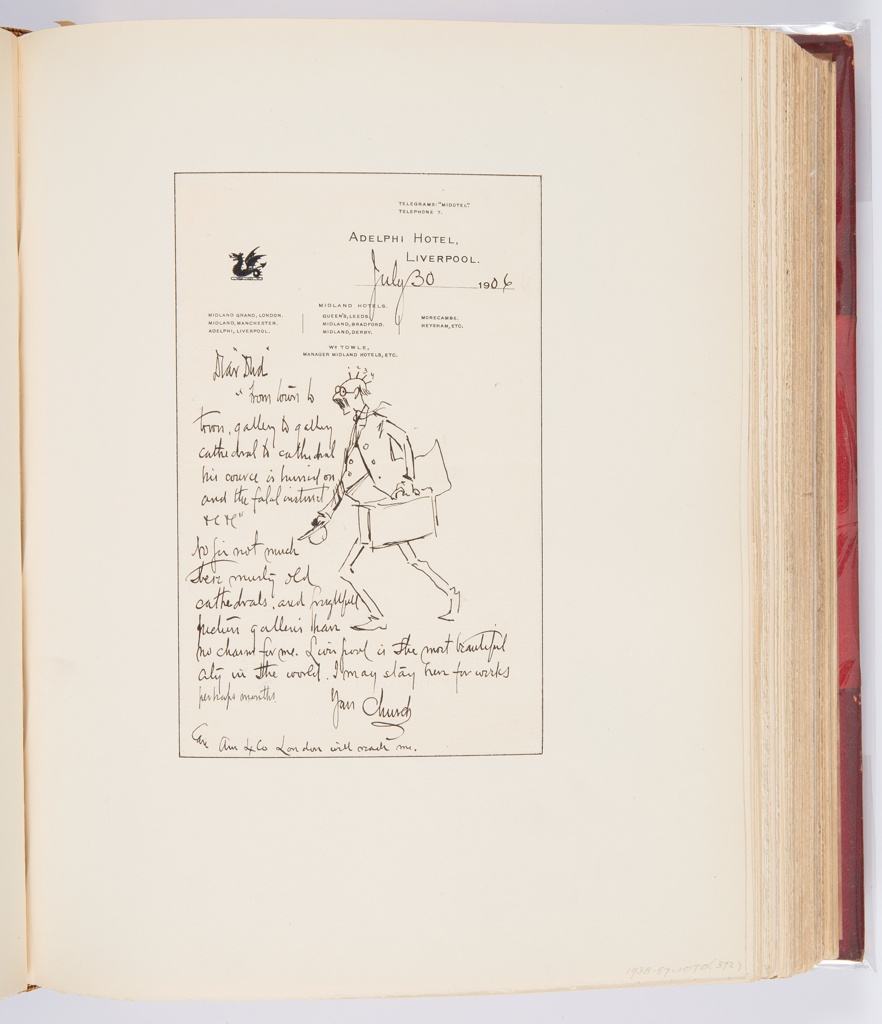 TELEGRAMS: "MIDOTEL"
TELEPHONE 7.
ADELPHI HOTEL,
LIVERPOOL.
July 30 1906
MIDLAND HOTELS.
MIDLAND GRAND, LONDON.
MIDLAND, MANCHESTER.
ADELPHI, LIVERPOOL.
QUEEN'S, LEEDS.
MIDLAND, BRADFORD.
MIDLAND, DERBY.
MORECAMBE.
HEYSHAM, ETC.
WM TOWLE,
MANAGER MIDLAND HOTELS, ETC.
Dear "Dud"
"From town to
town, gallery to gallery
cathedral to cathedral
his cource is hurried on
and the fatal instinct
&c &c"
No sir not much
these musty old
cathedrals, and frightfull
picture galleries have
no charm for me. Liverpool is the most beautiful
city in the world. I may stay here for weeks
perhaps months
Your Church
Care Am Ex Co London will reach me.